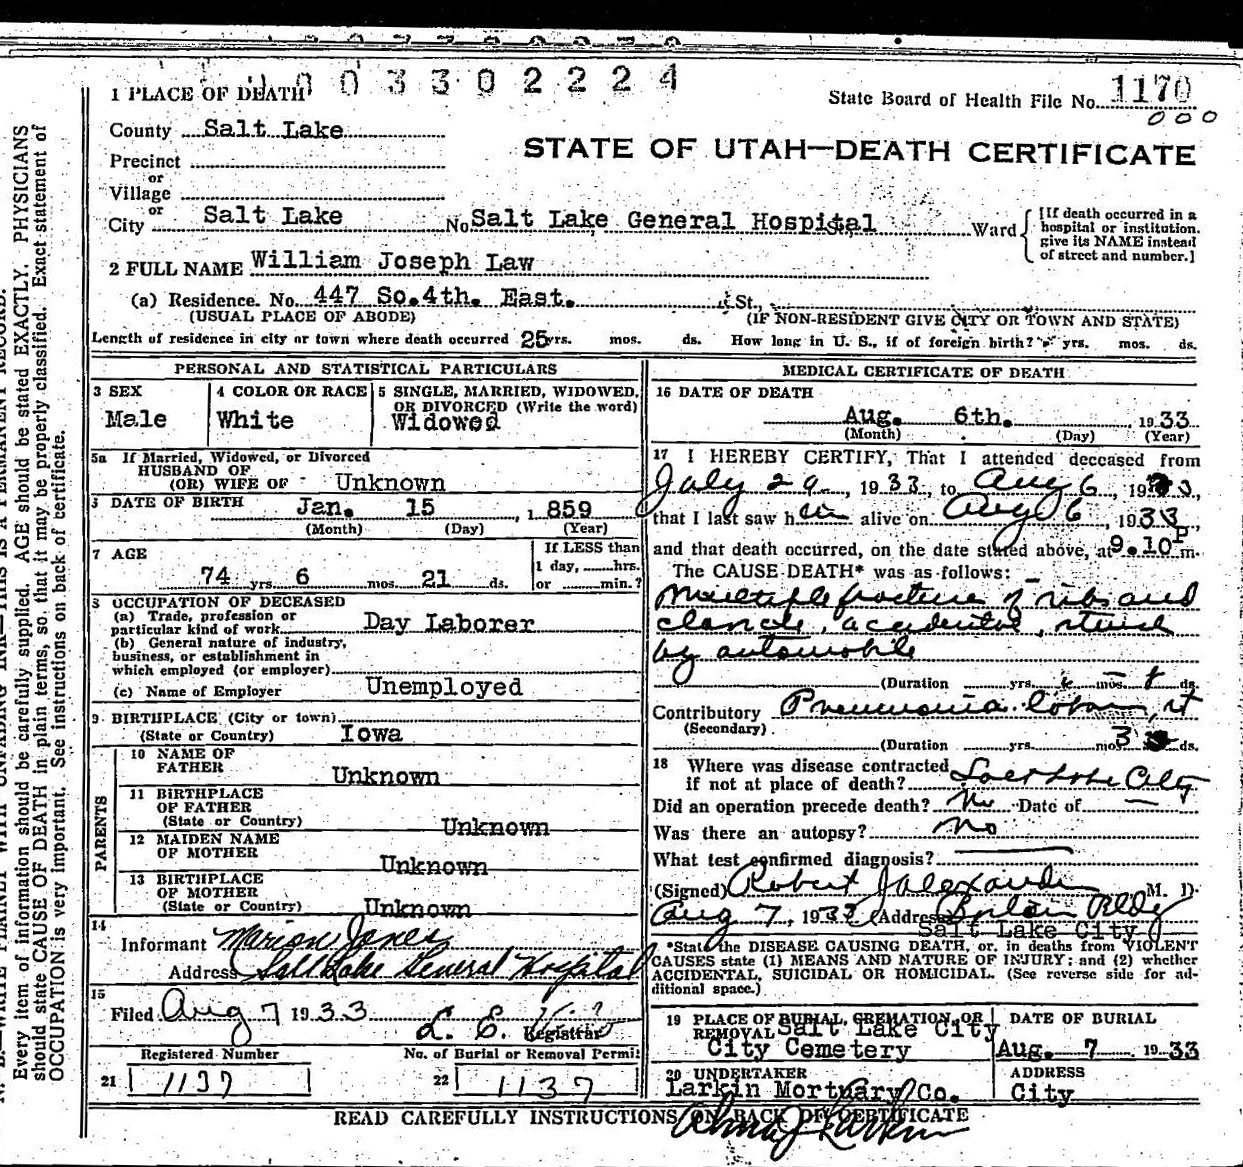 0 0 3 3 0 2 2 2 4
1 PLACE OF DEATH
State Board of Health File No. 1170
000
County Salt Lake
STATE OF UTAH—DEATH CERTIFICATE
Precinct
or
Village
or
City Salt Lake No. Salt Lake General Hospital Ward
[If death occurred in a
hospital or institution,
give its NAME instead
of street and number.]
2 FULL NAME William Joseph Law
(a) Residence. No. 447 So. 4th. East. St.,
(USUAL PLACE OF ABODE) (IF NON-RESIDENT GIVE CITY OR TOWN AND STATE)
Length of residence in city or town where death occurred 25 yrs. mos. ds. How long in U. S., if of foreign birth? yrs. mos. ds.
PERSONAL AND STATISTICAL PARTICULARS
3 SEX
Male
4 COLOR OR RACE
White
5 SINGLE, MARRIED, WIDOWED,
OR DIVORCED (Write the word)
Widowed
5a If Married, Widowed, or Divorced
HUSBAND OF
(OR) WIFE OF Unknown
DATE OF BIRTH Jan. 15, 1859
(Month) (Day) (Year)
7 AGE
74 yrs. 6 mos. 21 ds.
If LESS than
1 day, hrs.
or min.?
8 OCCUPATION OF DECEASED
(a) Trade, profession or
particular kind of work Day Laborer
(b) General nature of industry,
business, or establishment in
which employed (or employer)
(c) Name of Employer Unemployed
9 BIRTHPLACE (City or town)
(State or Country) Iowa
PARENTS
10 NAME OF
FATHER Unknown
11 BIRTHPLACE
OF FATHER
(State or Country) Unknown
12 MAIDEN NAME
OF MOTHER Unknown
13 BIRTHPLACE
OF MOTHER
(State or Country) Unknown
14
Informant Marion Jones
Address Salt Lake General Hospital
15
Filed Aug 7 1933 L. E.
Registrar
Registered Number
21 1137
No. of Burial or Removal Permit
22 1137
MEDICAL CERTIFICATE OF DEATH
16 DATE OF DEATH
Aug. 6th. 1933
(Month) (Day) (Year)
17 I HEREBY CERTIFY, That I attended deceased from
July 29, 1933, to Aug 6, 1933,
that I last saw him alive on Aug 6, 1933,
and that death occurred, on the date stated above, at 9.10 P m.
The CAUSE DEATH* was as follows:
Multiple fracture of ribs and
clavicle, accidental, struck
by automobile
(Duration yrs. mos. 8 ds.
Contributory Pneumonia lobar, rt
(Secondary)
(Duration yrs. mos. 3 ds.
18 Where was disease contracted
if not at place of death? Salt Lake City
Did an operation precede death? No Date of —
Was there an autopsy? No
What test confirmed diagnosis?
(Signed) Robert J Alexander M. D.
Aug 7, 1933 (Address) Boston Bldg
Salt Lake City
*State the DISEASE CAUSING DEATH, or, in deaths from VIOLENT
CAUSES state (1) MEANS AND NATURE OF INJURY; and (2) whether
ACCIDENTAL, SUICIDAL OR HOMICIDAL. (See reverse side for ad-
ditional space.)
19 PLACE OF BURIAL, CREMATION, OR
REMOVAL Salt Lake City
City Cemetery
DATE OF BURIAL
Aug. 7 1933
20 UNDERTAKER
Larkin Mortuary Co.
ADDRESS
City
Larkin
READ CAREFULLY INSTRUCTIONS ON BACK OF CERTIFICATE
Every item of information should be carefully supplied. AGE should be stated EXACTLY. PHYSICIANS
should state CAUSE OF DEATH in plain terms, so that it may be properly classified. Exact statement of
OCCUPATION is very important. See instructions on back of certificate.